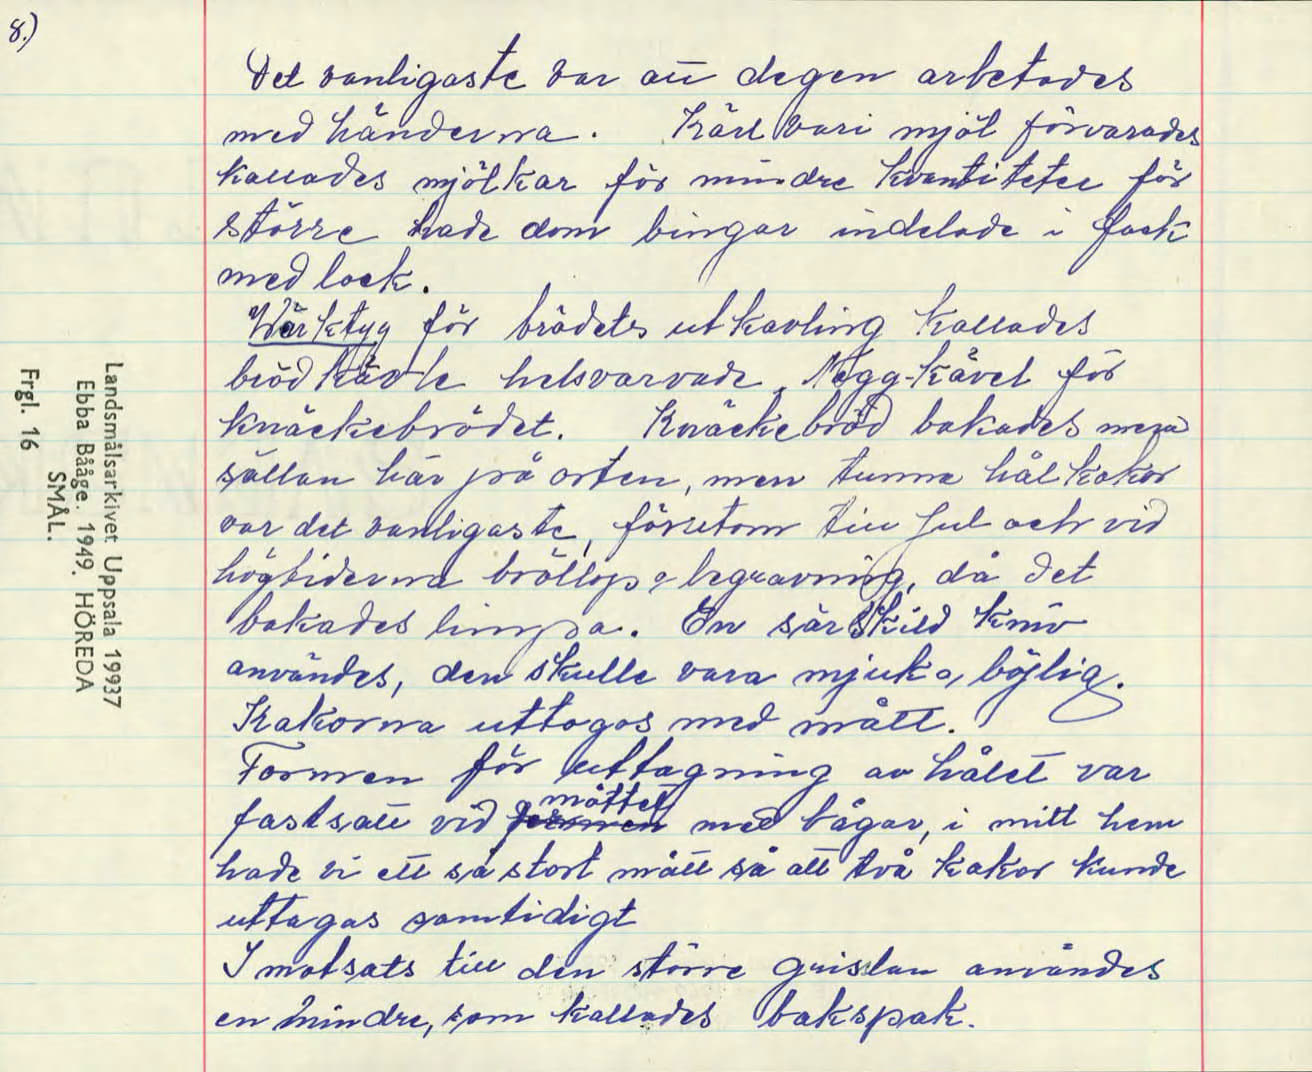 8.)
Det vanligaste var att degen arbetades
med händerna. Kärl vari mjöl förvarades
kallades mjölkar för mindre kvantiteter för
större hade dom bingar indelade i fack
med lock.
Wärktyg för brödets utkavling kallades
brödkävle helsvarvade, Nagg-kavel för
knäckebrödet. Knäckebröd bakades mera
sällan här på orten, men tunna hålkakor
var det vanligaste, förutom till jul och vid
högtiderna bröllop o begravning, då det
bakades limpa. En särskild kniv
användes, den skulle vara mjuk o, böjlig.
Kakorna uttogos med mått.
Formen för uttagning av hålet var
fastsatt vid formen måttet med bågar, i mitt hem
hade vi ett så stort mått så att två kakor kunde
uttagas samtidigt
I motsats till den större grislan användes
en mindre, som kallades bakspak.
Landsmålsarkivet Uppsala 19937
Ebba Bååge. 1949. HÖREDA
SMÅL.
Frgl. 16